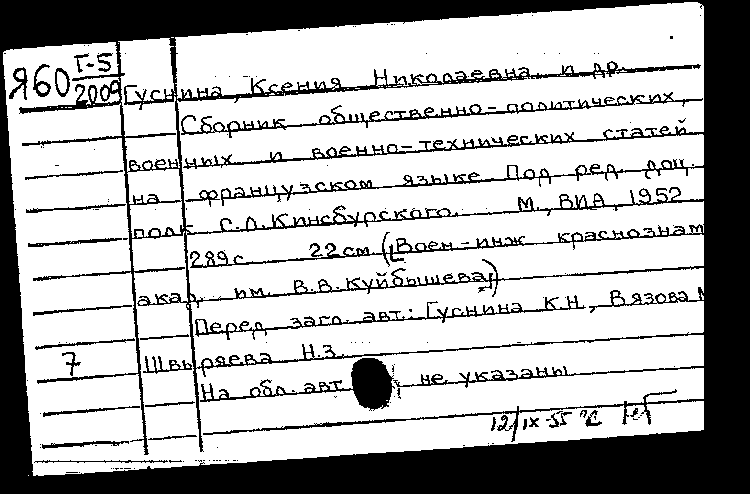 Я60 Г-5
2009 Гуснина, Ксения Николаевна и др.
Сборник общественно-политических,
военных и военно-технических статей
на французском языке. Под ред. доц.
полк. С.Л. Кинсбурского. М., ВИА, 1952
289 с. 22 см. ([Воен-инж краснознам
акад. им. В.В. Куйбышева])
Перед загл. авт.: Гуснина К.Н., Вязова М
7 Швыряева Н.З.
На обл. авт. не указаны
12/IX-55